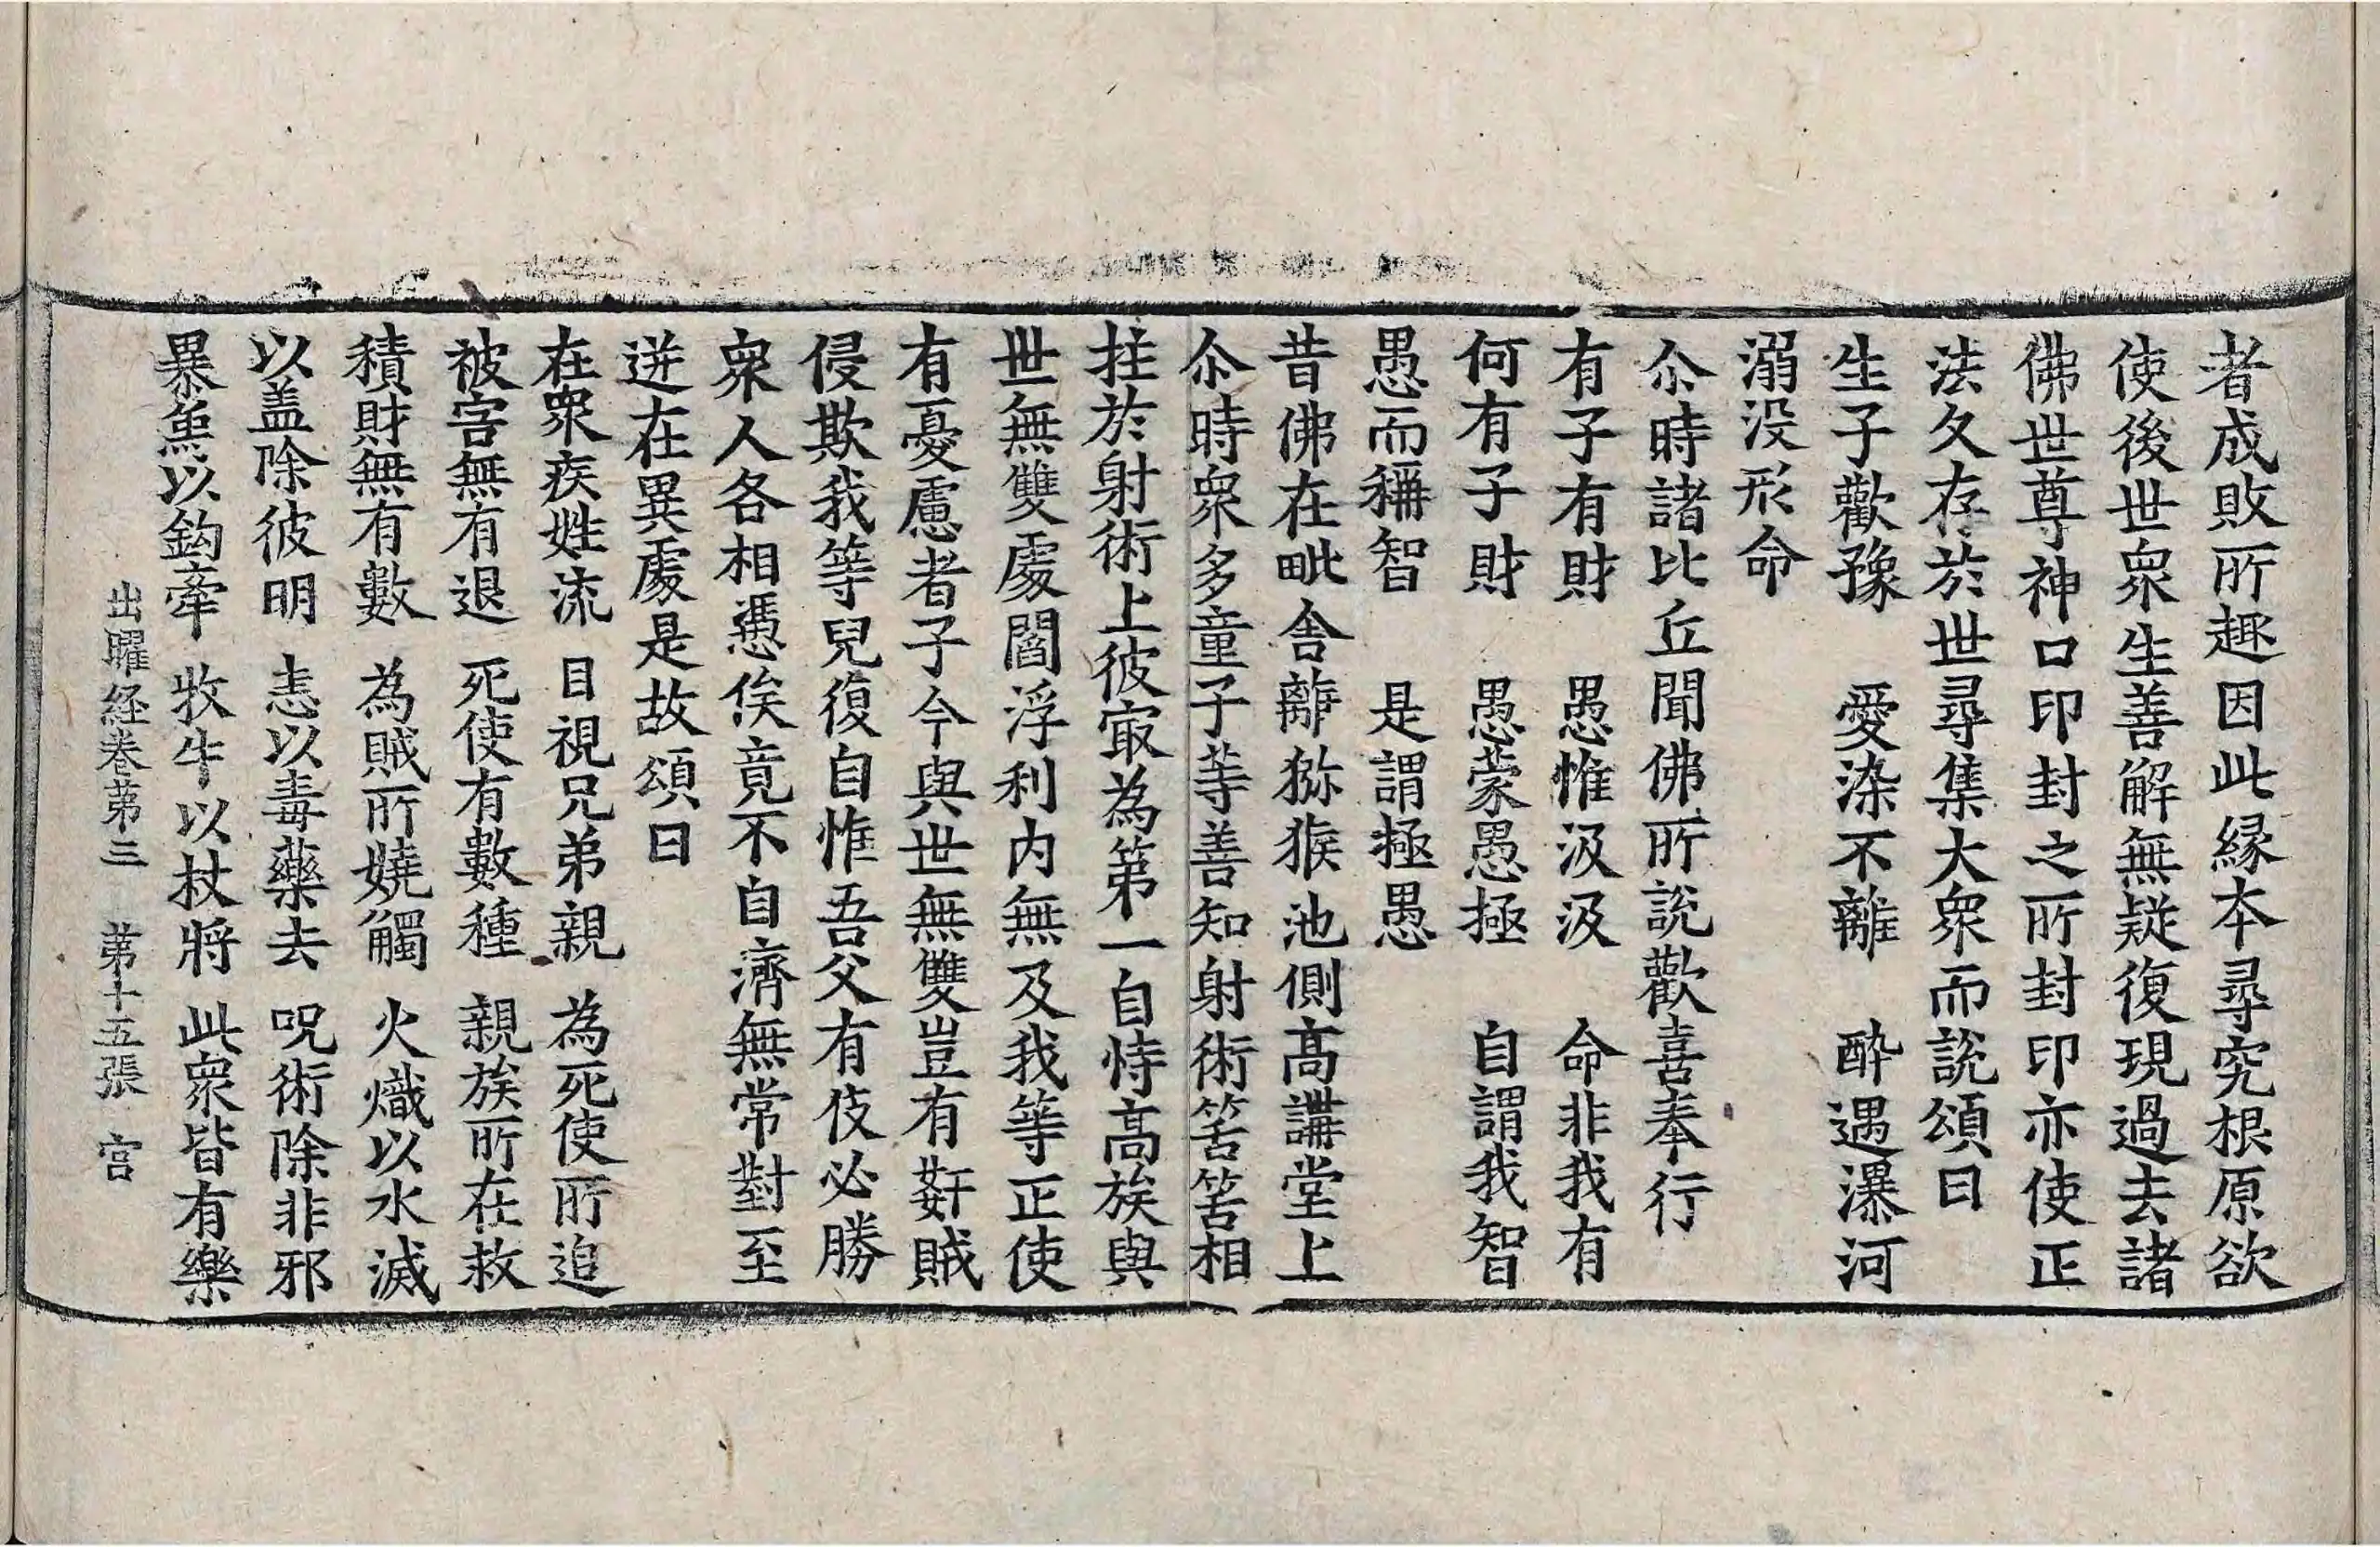 者成敗所趣因此縁本尋究根原欲
使後世衆生善解無疑復現過去諸
佛世尊神口印封之所封印亦使正
法久存於世尋集大衆而說頌曰
生子歡豫　愛染不離　酔遇瀑河
溺没形命
尒時諸比丘聞佛所說歡喜奉行
有子有財　愚惟汲汲　命非我有
何有子財　愚蒙愚極　自謂我智
愚而稱智　是謂極愚
昔佛在毗舎離猕猴池側髙講堂上
尒時衆多童子等善知射術筈筈相
拄於射術上彼㝡為第一自恃髙族與
世無雙處閻浮利内無及我等正使
有憂慮者子今與世無雙豈有姧賊
侵欺我等兒復自惟吾父有伎必勝
衆人各相憑俟竟不自濟無常對至
迸在異處是故頌曰
在衆疾姓流　目視兄弟親　為死使所追
被害無有退　死使有數種　親族所在救
積財無有數　為賊所嬈觸　火熾以水滅
以盖除彼明　恚以毒藥去　呪術除非邪
暴魚以鈎牽　牧牛以杖將　此衆皆有樂
出曜經卷第三　第十五張　宫